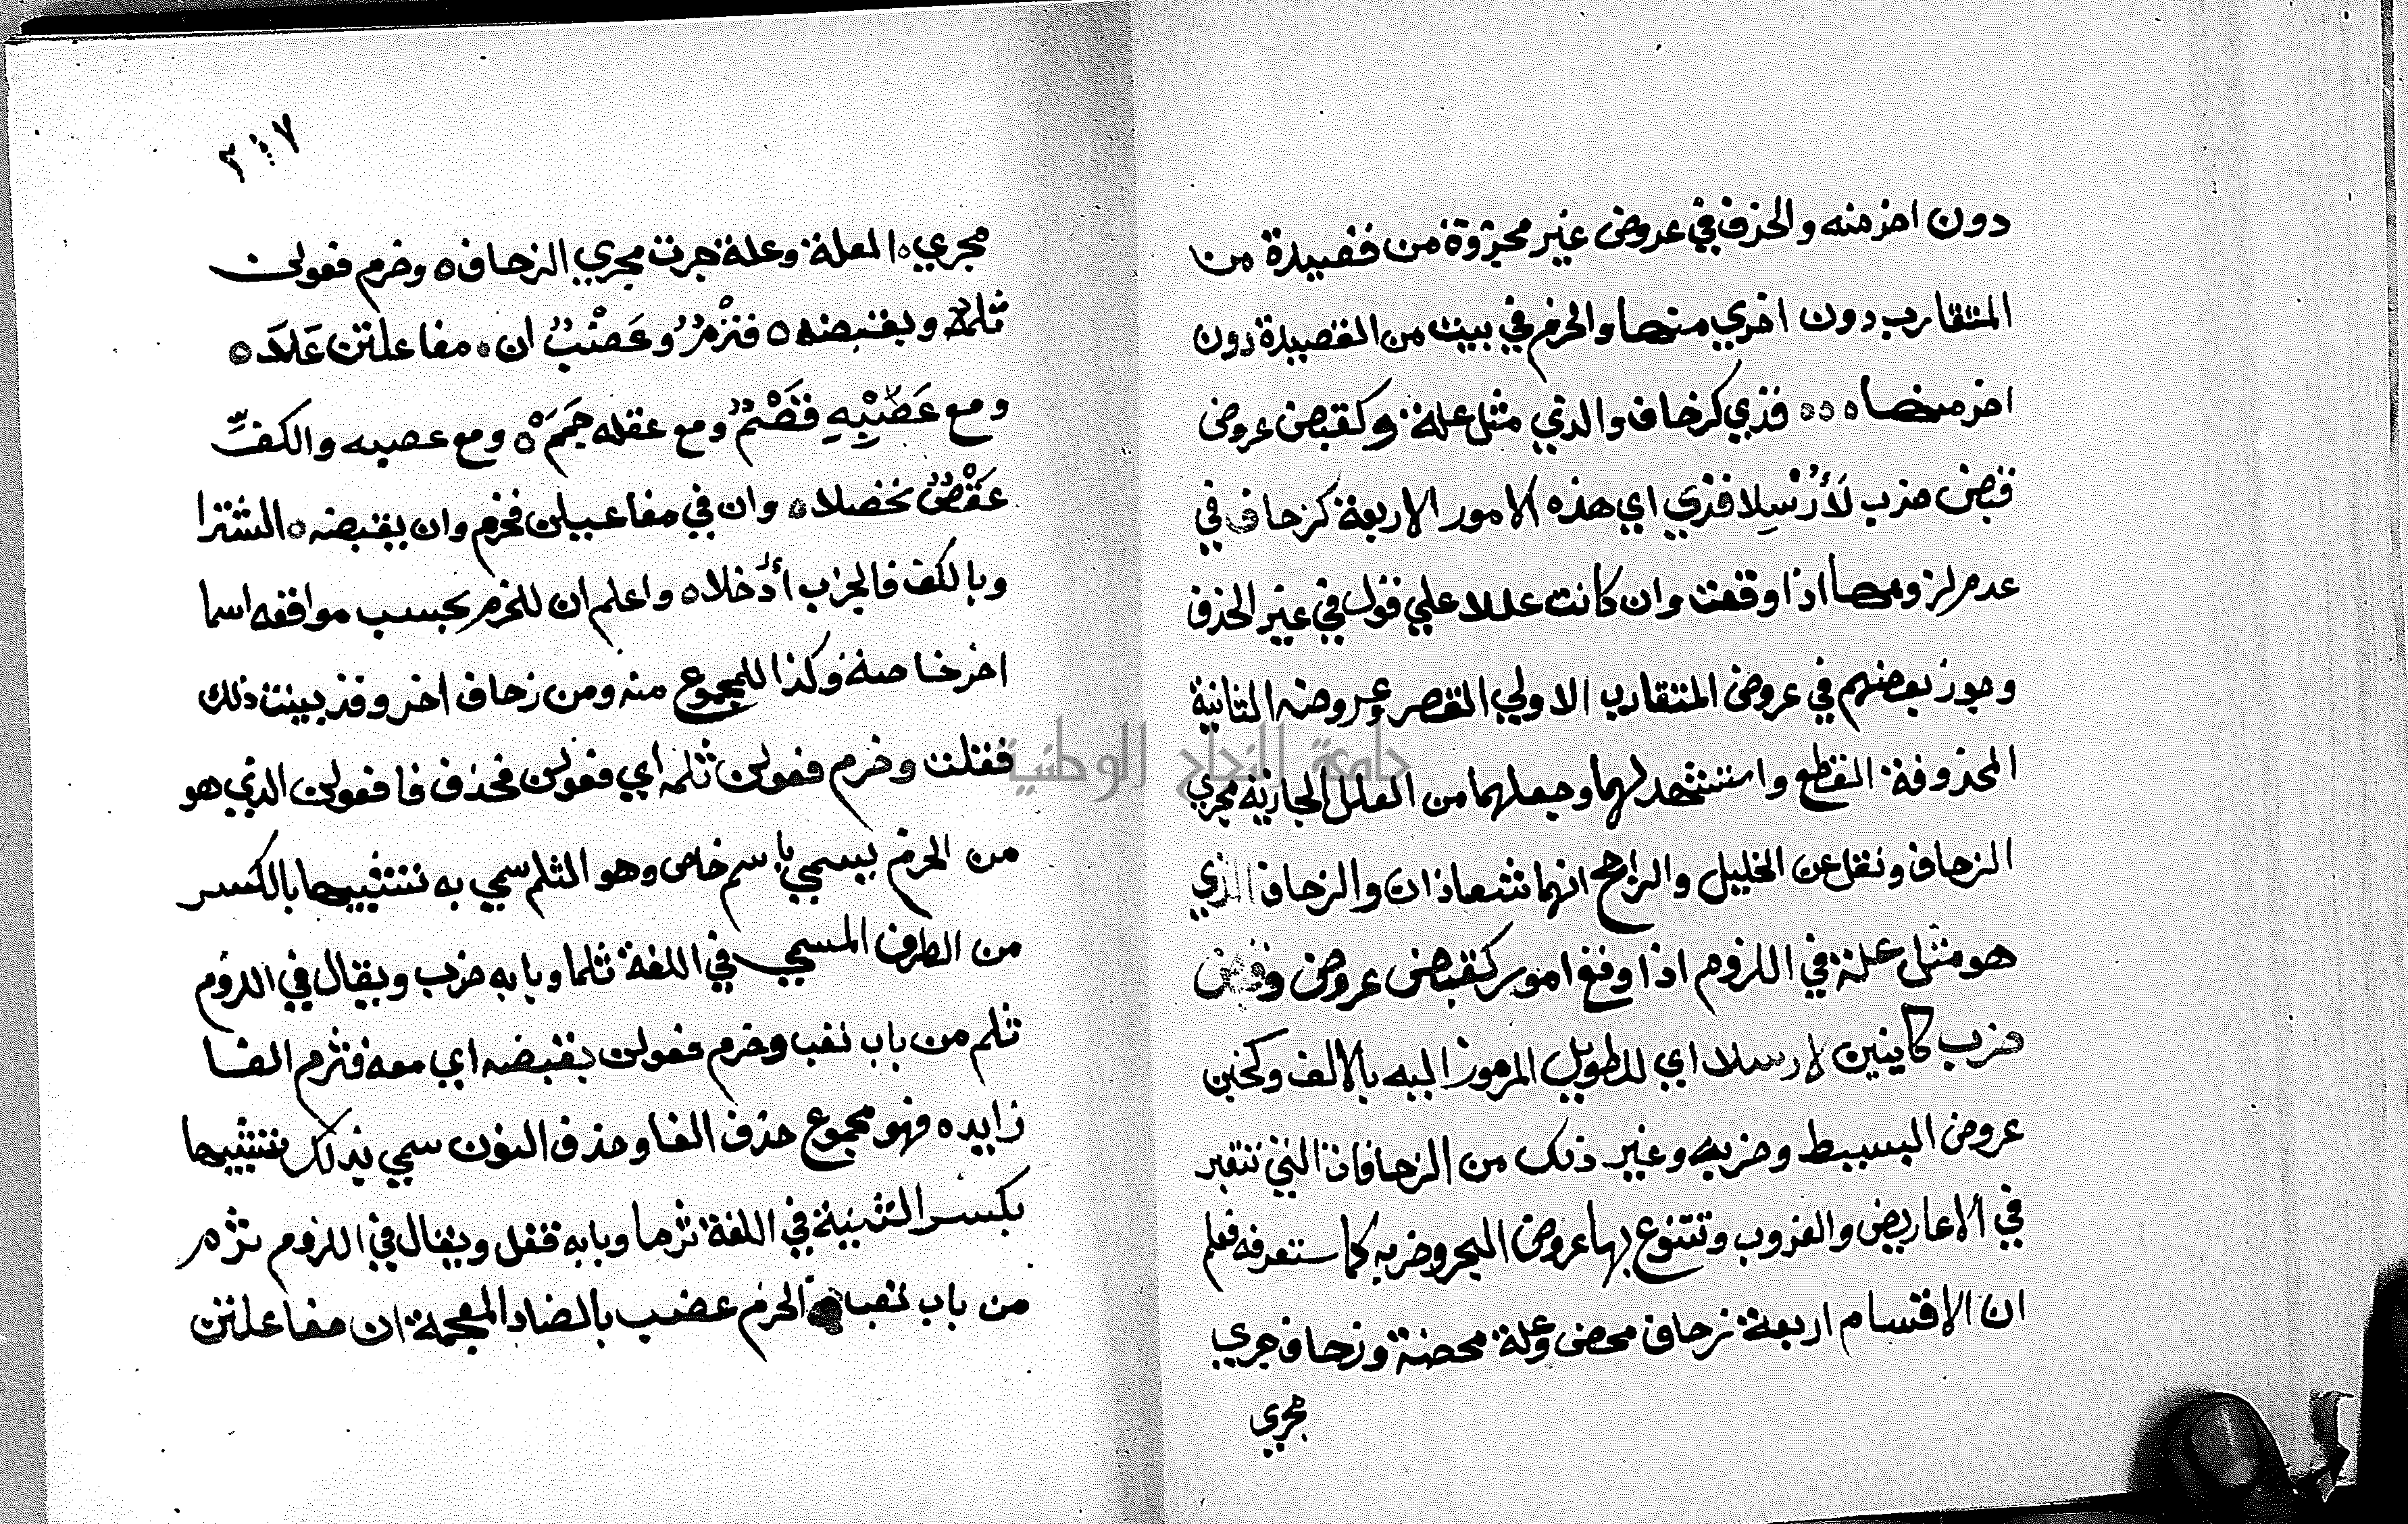 دون اخر منه والحذف في عروض غير مجزوة من قصيدة من
المتقارب دون اخري منها والخرم في بيت من القصيدة دون
اخر منها ٥٥٥ فذي كزحاف والذي مثل علة وكقبض عروض
قبض ضرب لأرسلا فذي اي هذه الامور الاربعة كزحاف في
عدم لزومها اذا وقعت وان كانت عللا علي قول في غير الحذف
وجوز بعضهم في عروض المتقارب الاولي القصر وعروضه الثانية
المحذوفة القطع واستشهد لهما وجعلهما من العلل الجارية مجري
الزحاف ونقل عن الخليل والراجح انهما شعاذان والزحاف الذي
هو مثل علة في اللزوم اذا وقع امور كقبض عروض وقبض
ضرب كاينين لارسلا اي للطويل المرموز اليه بالالف وكخبن
عروض البسيط وضربه وغير ذلك من الزحافات التي تتغير
في الاعاريض والضروب وتتنوع بها عروض البحر وضربه كما ستعرفه فعلم
ان الاقسام اربعة زحاف محض وعلة محضة وزحاف جري
مجري
٢١٧
مجري ٥ العلة وعلة جرت مجري الزحاف ٥ وخرم فعولن
ثلمه وبقبضه ٥ فثرم وعضب ان ٥ مفاعلتن علا ٥
ومع عصبه فقصم ومع عقله جمم ٥ ومع عصبه والكف
عقص نخصلا ٥ وان في مفاعيلن فخرم وان بقبضه ٥ الشترا
وبالكف فالخرب أدخلا ٥ واعلم ان للخرم بحسب مواقعه اسما
اخر خاصة وكذا للمجموع منه ومن زحاف اخر وقد بينت ذلك
فقلت وخرم فعولن ثلمه اي فعولن فحذف فا فعولن الذي هو
من الخرم يسمي باسم خاص وهو الثلم سمي به تشبيها بالكسر
من الطرف المسمي في اللغة ثلما وبابه ضرب ويقال في اللزوم
ثلم من باب تعب وخرم فعولن بقبضه اي معه فثرم الفا
زايده فهو مجموع حذف الفا وحذف النون سمي بذلك تشبيها
بكسر الثنية في اللغة ثرما وبابه قتل ويقال في اللزوم ثرم
من باب تعب الخرم عضب بالضاد المعجمة ان مفاعلتن
جامعة النجاح الوطنية